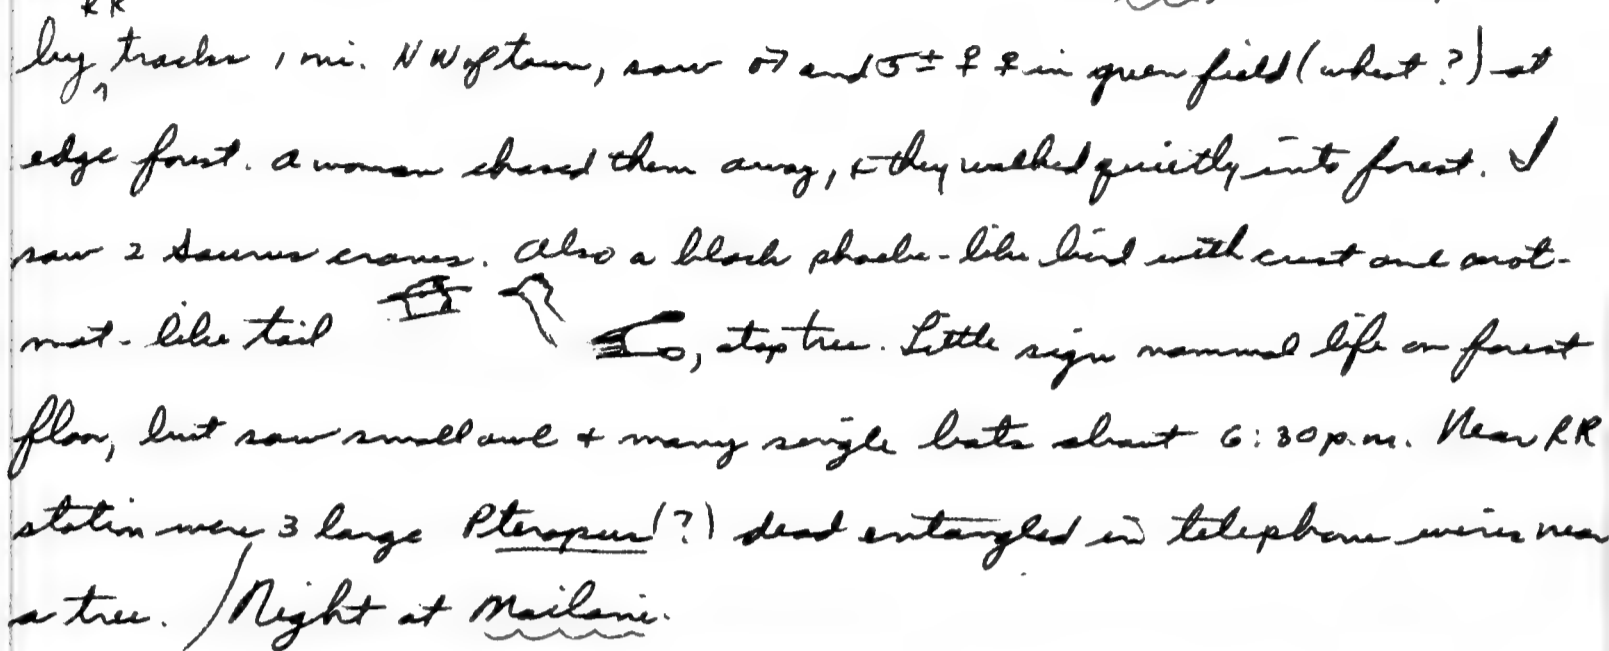 RR
by ^ tracks 1 mi. NW of town, saw ♂ and 5± ♀♀ in green field (wheat?) at
edge forest. A woman chased them away, + they walked quietly into forest. I
saw 2 Saurus cranes. Also a black phoebe-like bird with crest and
mot-like tail, atop tree. Little sign mammal life on forest
floor, but saw small owl + many single bats about 6:30 p.m. Near RR
station were 3 large Pteropus (?) dead entangled in telephone wires near
a tree. / Night at Mailani.